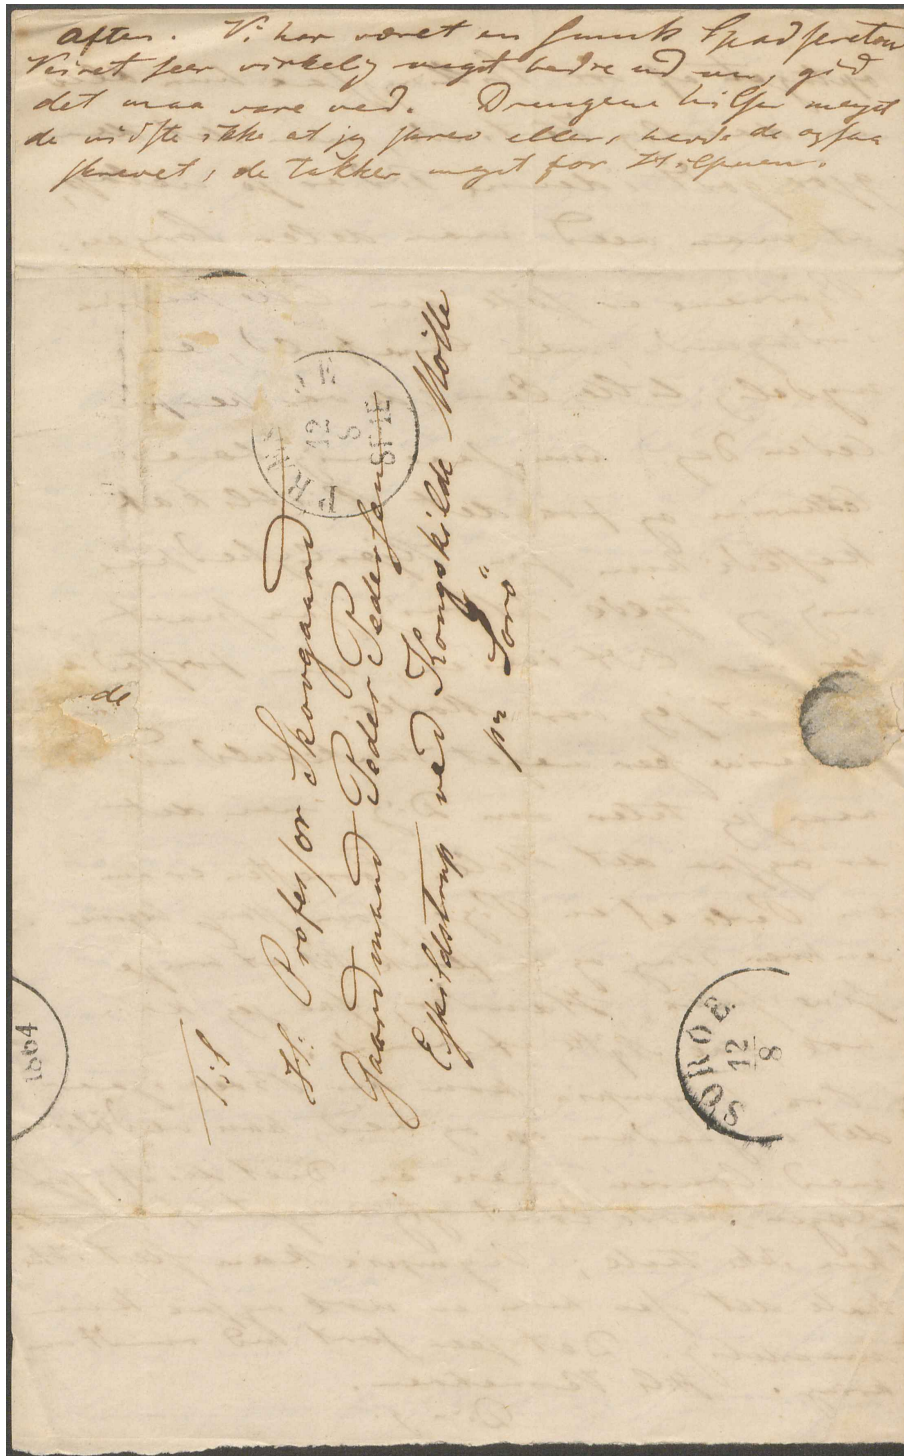 Aften. Vi har været en smuk Spadseretour
Veiret seer virkelig meget bedre ud nu, gid
det maa vare ved. Drengene hilser meget
de vidste ikke at jeg skrev ellers havde de ogsaa
skrevet, de takker meget for Hilsenen.
de
Til
Hr. Professor Skovgaard
Gaardmand Peder Pedersen
Eskildstrup ved Kongskilde Mølle
pr Sorö
12
8
1864
SOROE
12
8